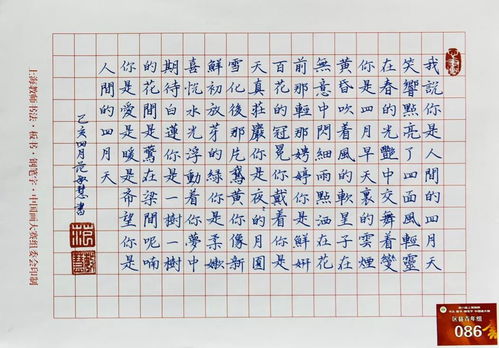 我說你是人間的四月天
笑響點亮了四面風輕靈
在春的光艷中交舞着變
你是四月早天裏的雲煙
黃昏吹着風的軟星子在
無意中閃細雨點灑在花
前那輕那娉婷你是鮮妍
百花的冠冕你戴着你是
天真莊嚴你是夜夜的月圓
雪化後那片鵝黃你像新
鮮初放芽的綠你是柔嫩
喜悅水光浮動着你夢中
期待白蓮你是一樹一樹
的花開是燕在梁間呢喃
你是愛是暖是希望你是
人間的四月天
己亥四月范敏慧書
上海教师书法·板书·钢笔字·中国画大赛组委会印制
区县青年组
086